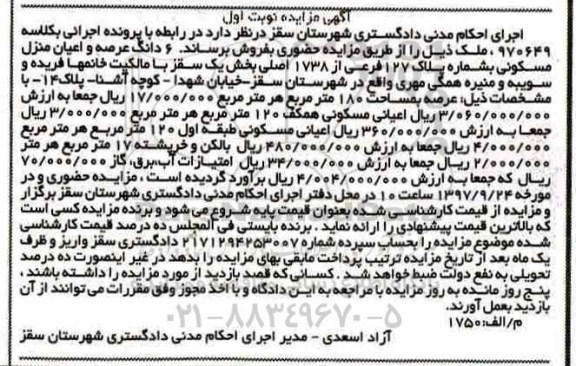 آگهی مزایده نوبت اول
اجرای احکام مدنی دادگستری شهرستان سقز درنظر دارد در رابطه با پرونده اجرائی بکلاسه
۹۷۰۶۴۹ ، ملک ذیل را از طریق مزایده حضوری بفروش برساند. ۶ دانگ عرصه و اعیان منزل
مسکونی بشماره پلاک ۱۲۷فرعی از ۱۷۳۸ اصلی بخش یک سقز با مالکیت خانمها فریده و
سویبه و منیره همگی مهری واقع در شهرستان سقز-خیابان شهدا - کوچه آشنا- پلاک۱۴- با
مشخصات ذیل: عرصه بمساحت ۱۸۰ متر مربع هر متر مربع ۱۷/۰۰۰/۰۰۰ ریال جمعا به ارزش
۳/۰۶۰/۰۰۰/۰۰۰ ریال اعیانی مسکونی همکف ۱۲۰ متر مربع هر متر مربع ۳/۰۰۰/۰۰۰ ریال
جمعا به ارزش ۳۶۰/۰۰۰/۰۰۰ ریال اعیانی مسکونی طبقه اول ۱۲۰ متر مربع هر متر مربع
۴/۰۰۰/۰۰۰ ریال جمعا به ارزش ۴۸۰/۰۰۰/۰۰۰ ریال بالکن و خرپشته ۱۷ متر مربع هر متر
۲/۰۰۰/۰۰۰ ریال جمعا به ارزش ۳۴/۰۰۰/۰۰۰ ریال امتیازات آب،برق، گاز ۷۰/۰۰۰/۰۰۰
ریال که جمعا به ارزش ۴/۰۰۴/۰۰۰/۰۰۰ ریال برآورد گردیده است ، مزایده حضوری و در
مورخه ۱۳۹۷/۹/۲۴ ساعت ۱۰ در محل دفتر اجرای احکام مدنی دادگستری شهرستان سقز برگزار
و مزایده از قیمت کارشناسی شده بعنوان قیمت پایه شروع می شود و برنده مزایده کسی است
که بالاترین قیمت پیشنهادی را ارائه نماید . برنده بایستی فی المجلس ده درصد قیمت کارشناسی
شده موضوع مزایده را بحساب سپرده شماره ۲۱۷۱۲۹۴۲۵۳۰۰۷ دادگستری سقز واریز و ظرف
یک ماه بعد از تاریخ مزایده ترتیب پرداخت مابقی بهای مزایده را بدهد در غیر اینصورت ده درصد
تحویلی به نفع دولت ضبط خواهد شد . کسانی که قصد بازدید از مورد مزایده را داشته باشند ،
پنج روز مانده به روز مزایده با مراجعه به این دادگاه و با اخذ مجوز وفق مقررات می توانند از آن
بازدید بعمل آورند.
م/الف:۱۷۵۰
آزاد اسعدی - مدیر اجرای احکام مدنی دادگستری شهرستان سقز
۰۲۱-۸۸۳۴۹۶۷۰-۵